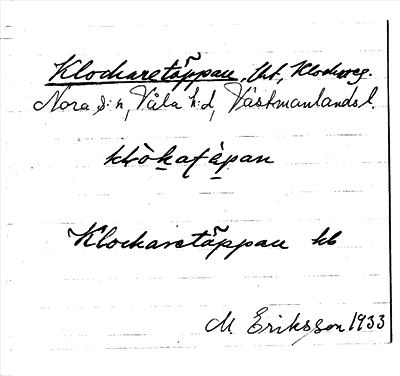 Klockaretäppan, lht, Klockareg.
Nora s:n, Våla h:d, Västmanlands l.
Klockaretäppan kb
M. Eriksson 1933